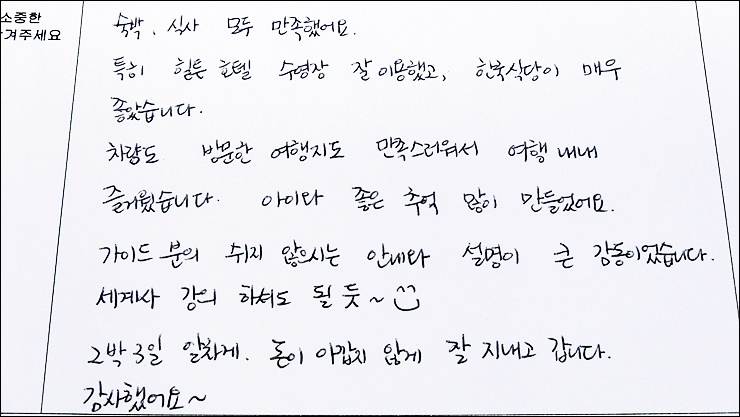 소중한
겨주세요
숙박, 식사 모두 만족했어요.
특히 힐튼 호텔 수영장 잘 이용했고, 한국식당이 매우
좋았습니다.
차량도 방문한 여행지도 만족스러워서 여행 내내
즐거웠습니다. 아이와 좋은 추억 많이 만들었어요.
가이드 분의 쉬지 않으시는 안내와 설명이 큰 감동이었습니다.
세계사 강의 하셔도 될 듯~
2박 3일 알차게. 돈이 아깝지 않게 잘 지내고 갑니다.
감사했어요~